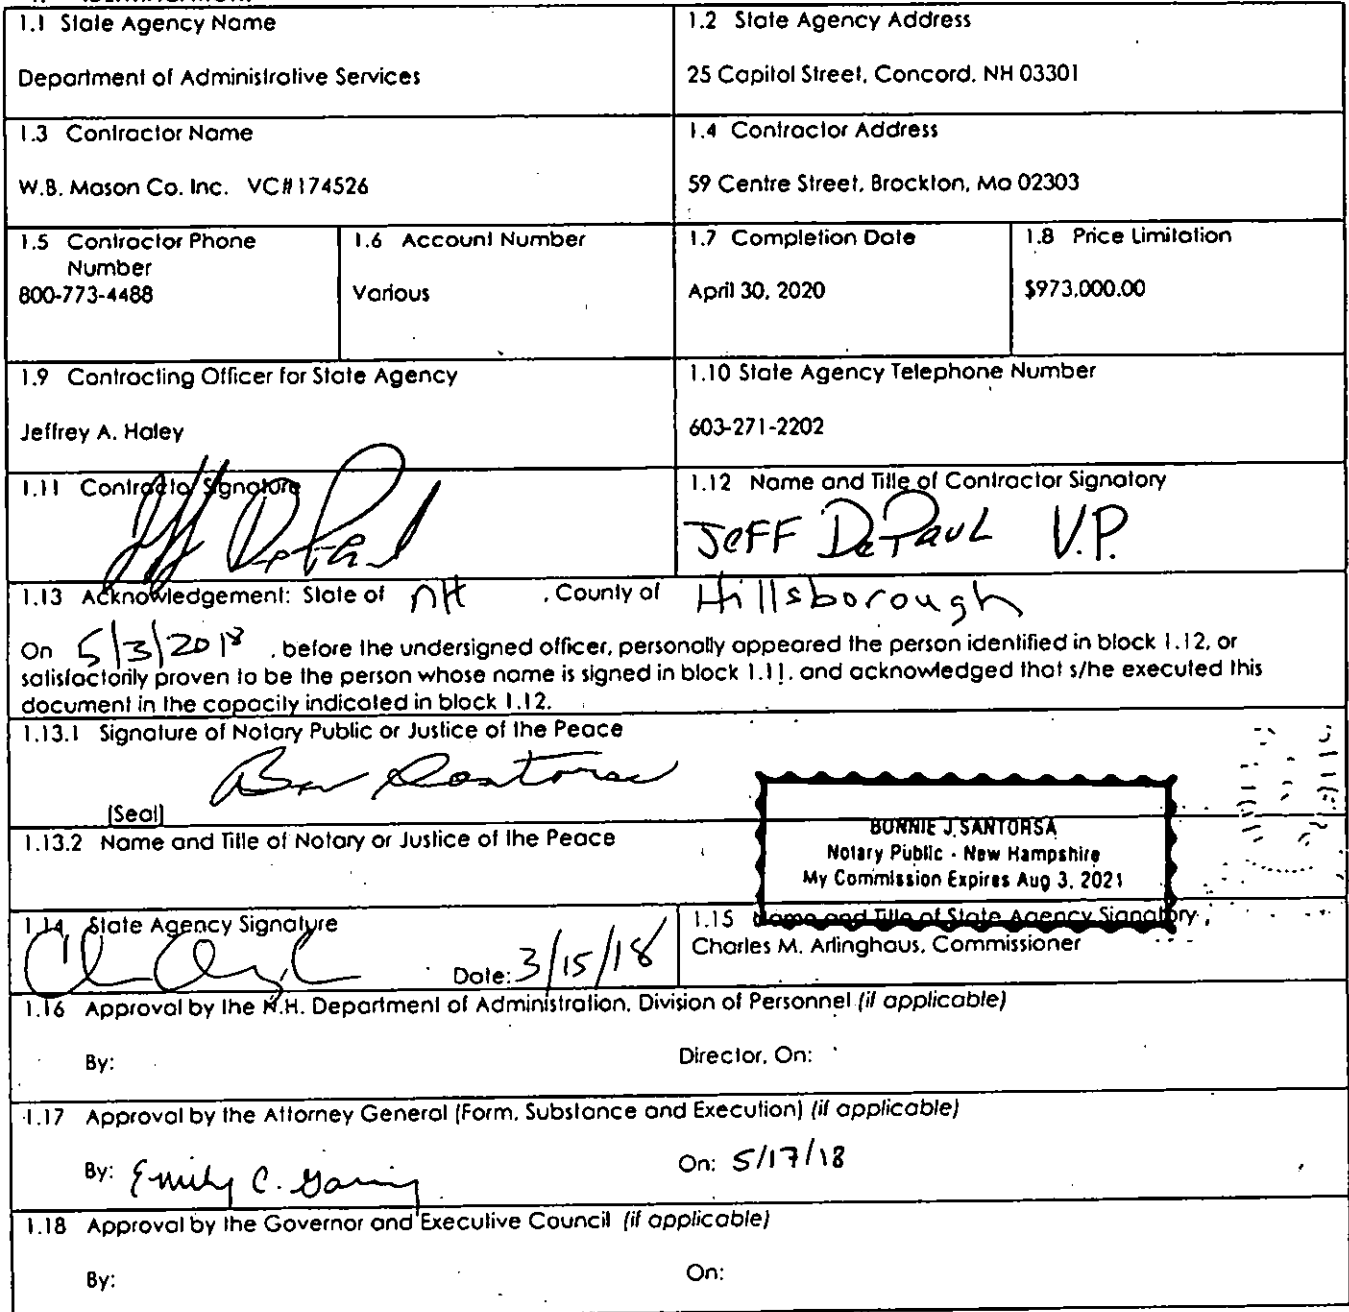 1.1 State Agency Name
Department of Administrative Services
1.2 State Agency Address
25 Capitol Street, Concord, NH 03301
1.3 Contractor Name
W.B. Mason Co. Inc. VC#174526
1.4 Contractor Address
59 Centre Street, Brockton, Ma 02303
1.5 Contractor Phone
Number
800-773-4488
1.6 Account Number
Various
1.7 Completion Date
April 30, 2020
1.8 Price Limitation
$973,000.00
1.9 Contracting Officer for State Agency
Jeffrey A. Haley
1.10 State Agency Telephone Number
603-271-2202
1.11 Contractor Signature
Jeff DePaul
1.12 Name and Title of Contractor Signatory
JEFF DePAUL V.P.
1.13 Acknowledgement: State of NH , County of Hillsborough
On 5/3/2018 , before the undersigned officer, personally appeared the person identified in block 1.12, or
satisfactorily proven to be the person whose name is signed in block 1.11, and acknowledged that s/he executed this
document in the capacity indicated in block 1.12.
1.13.1 Signature of Notary Public or Justice of the Peace
[Seal]
1.13.2 Name and Title of Notary or Justice of the Peace
BONNIE J. SANTORSA
Notary Public - New Hampshire
My Commission Expires Aug 3, 2021
1.14 State Agency Signature
Date: 3/15/18
1.15 Name and Title of State Agency Signatory
Charles M. Arlinghaus, Commissioner
1.16 Approval by the N.H. Department of Administration, Division of Personnel (if applicable)
By: Director, On:
1.17 Approval by the Attorney General (Form, Substance and Execution) (if applicable)
By: Emily C. On: 5/17/18
1.18 Approval by the Governor and Executive Council (if applicable)
By: On: